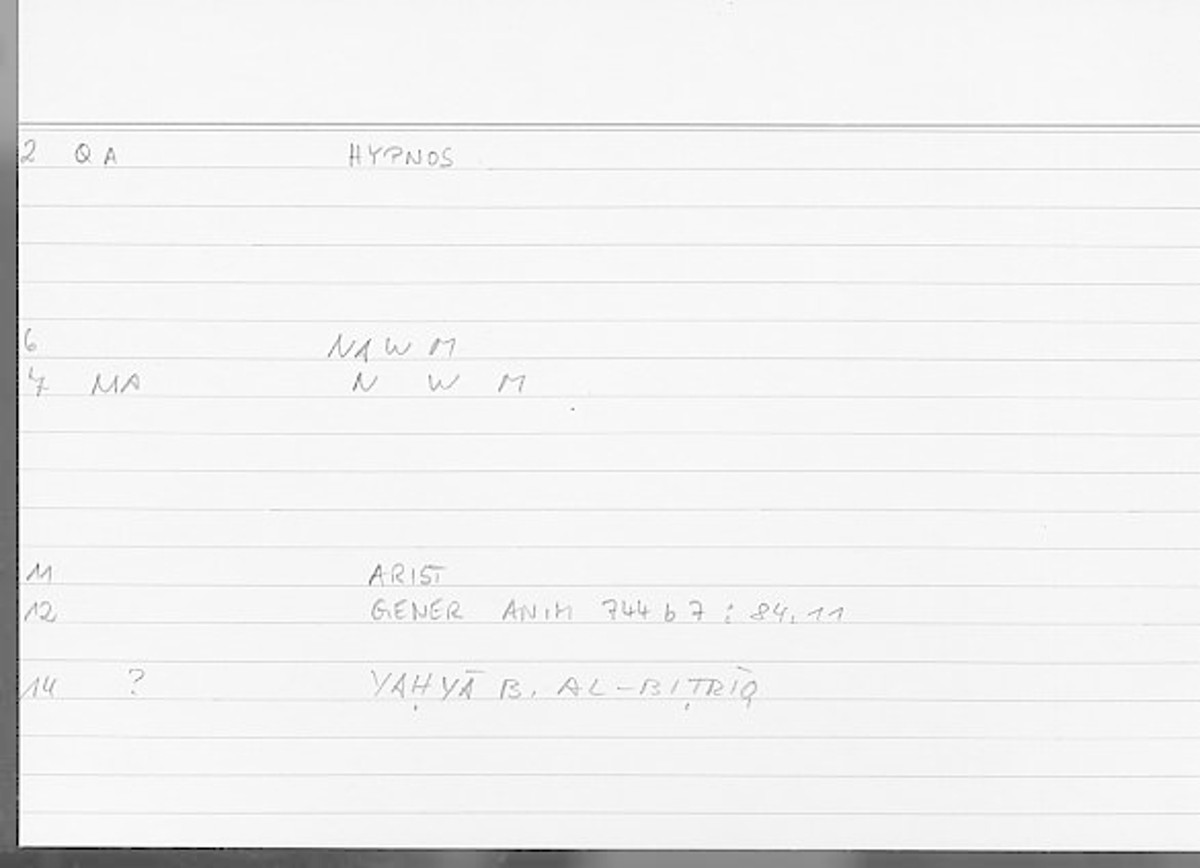 2 QA HYPNOS
6 NAWM
7 MA N W M
11 ARIST
12 GENER ANIM 744 b 7 : 84,11
14 ? YAḤYĀ B. AL-BIṬRĪQ